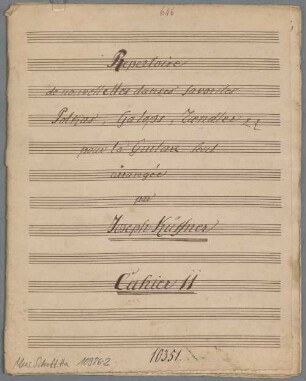 646
Repertoire
de nouvelles danses favorites
Polkas, Galops, Laendler
pour la Guitare seul
arrangée
par
Joseph Küffner
Cahier 11
Mus. Schott. Ha 10351-2
10351